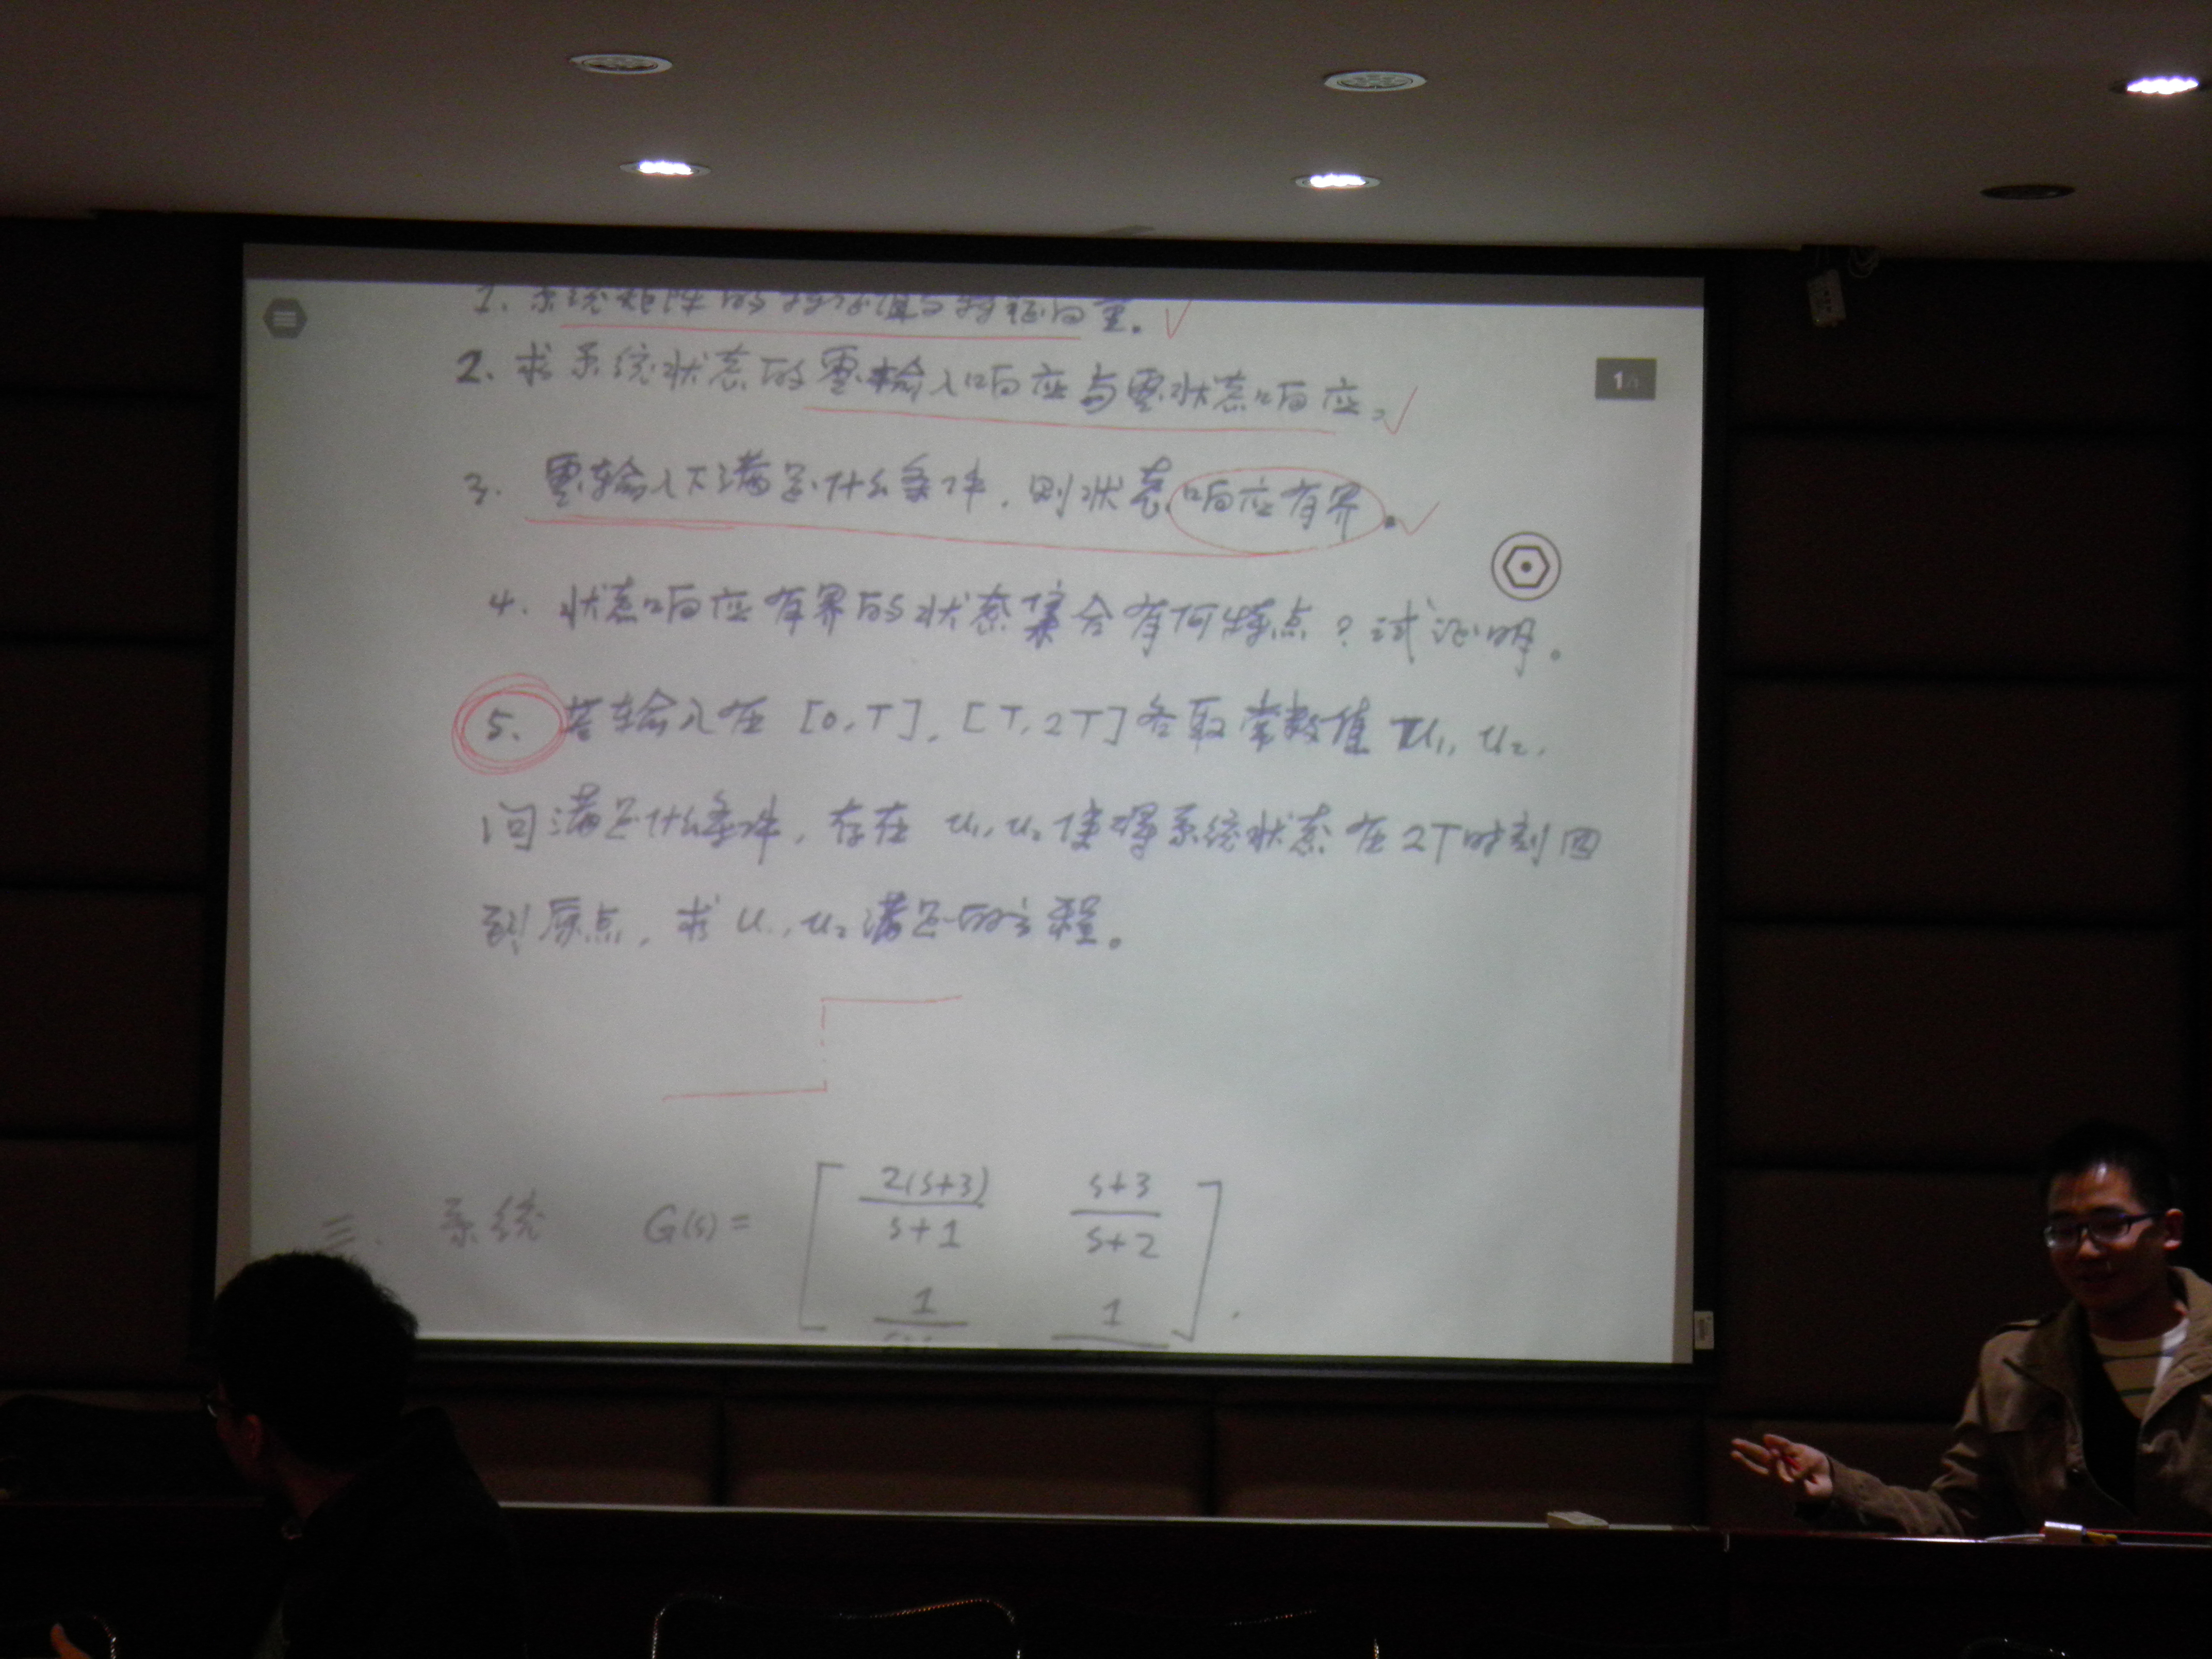 1. 系统矩阵的特征值与特征向量。
1/1
2. 求系统状态的零输入响应与零状态响应。
3. 零输入下满足什么条件，则状态响应有界。
4. 状态响应有界的状态集合有何特点？试证明。
5. 若输入在 [0,T], [T,2T] 各取常数值 u₁, u₂,
问满足什么条件，存在 u₁, u₂ 使得系统状态在 2T 时刻回
到原点，求 u₁, u₂ 满足的方程。
三. 系统 G(s) = [ 2(s+3)/s+1 s+3/s+2
1 1 ] .